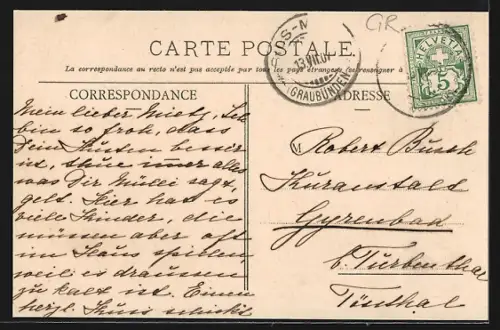 GR.
CARTE POSTALE.
13.VII.07
(GRAUBÜNDEN)
HELVETIA
5
La correspondance au recto n'est pas acceptée par tous les pays étrangers. (Se renseigner à
CORRESPONDANCE
ADRESSE
Mein lieber Mietz, Ich
bin so froh, dass
Dein Husten besser
ist, thue immer alles
was Dir Mülli sagt,
gelt. Hier hat es
viele Kinder, die
müssen aber oft
im Haus spielen
weil es draussen
zu kalt ist. Einen
herzl. Kuss schickt
M
Robert Busch
Kuranstalt
Gyrenbad
b/ Turbenthal
Tössthal